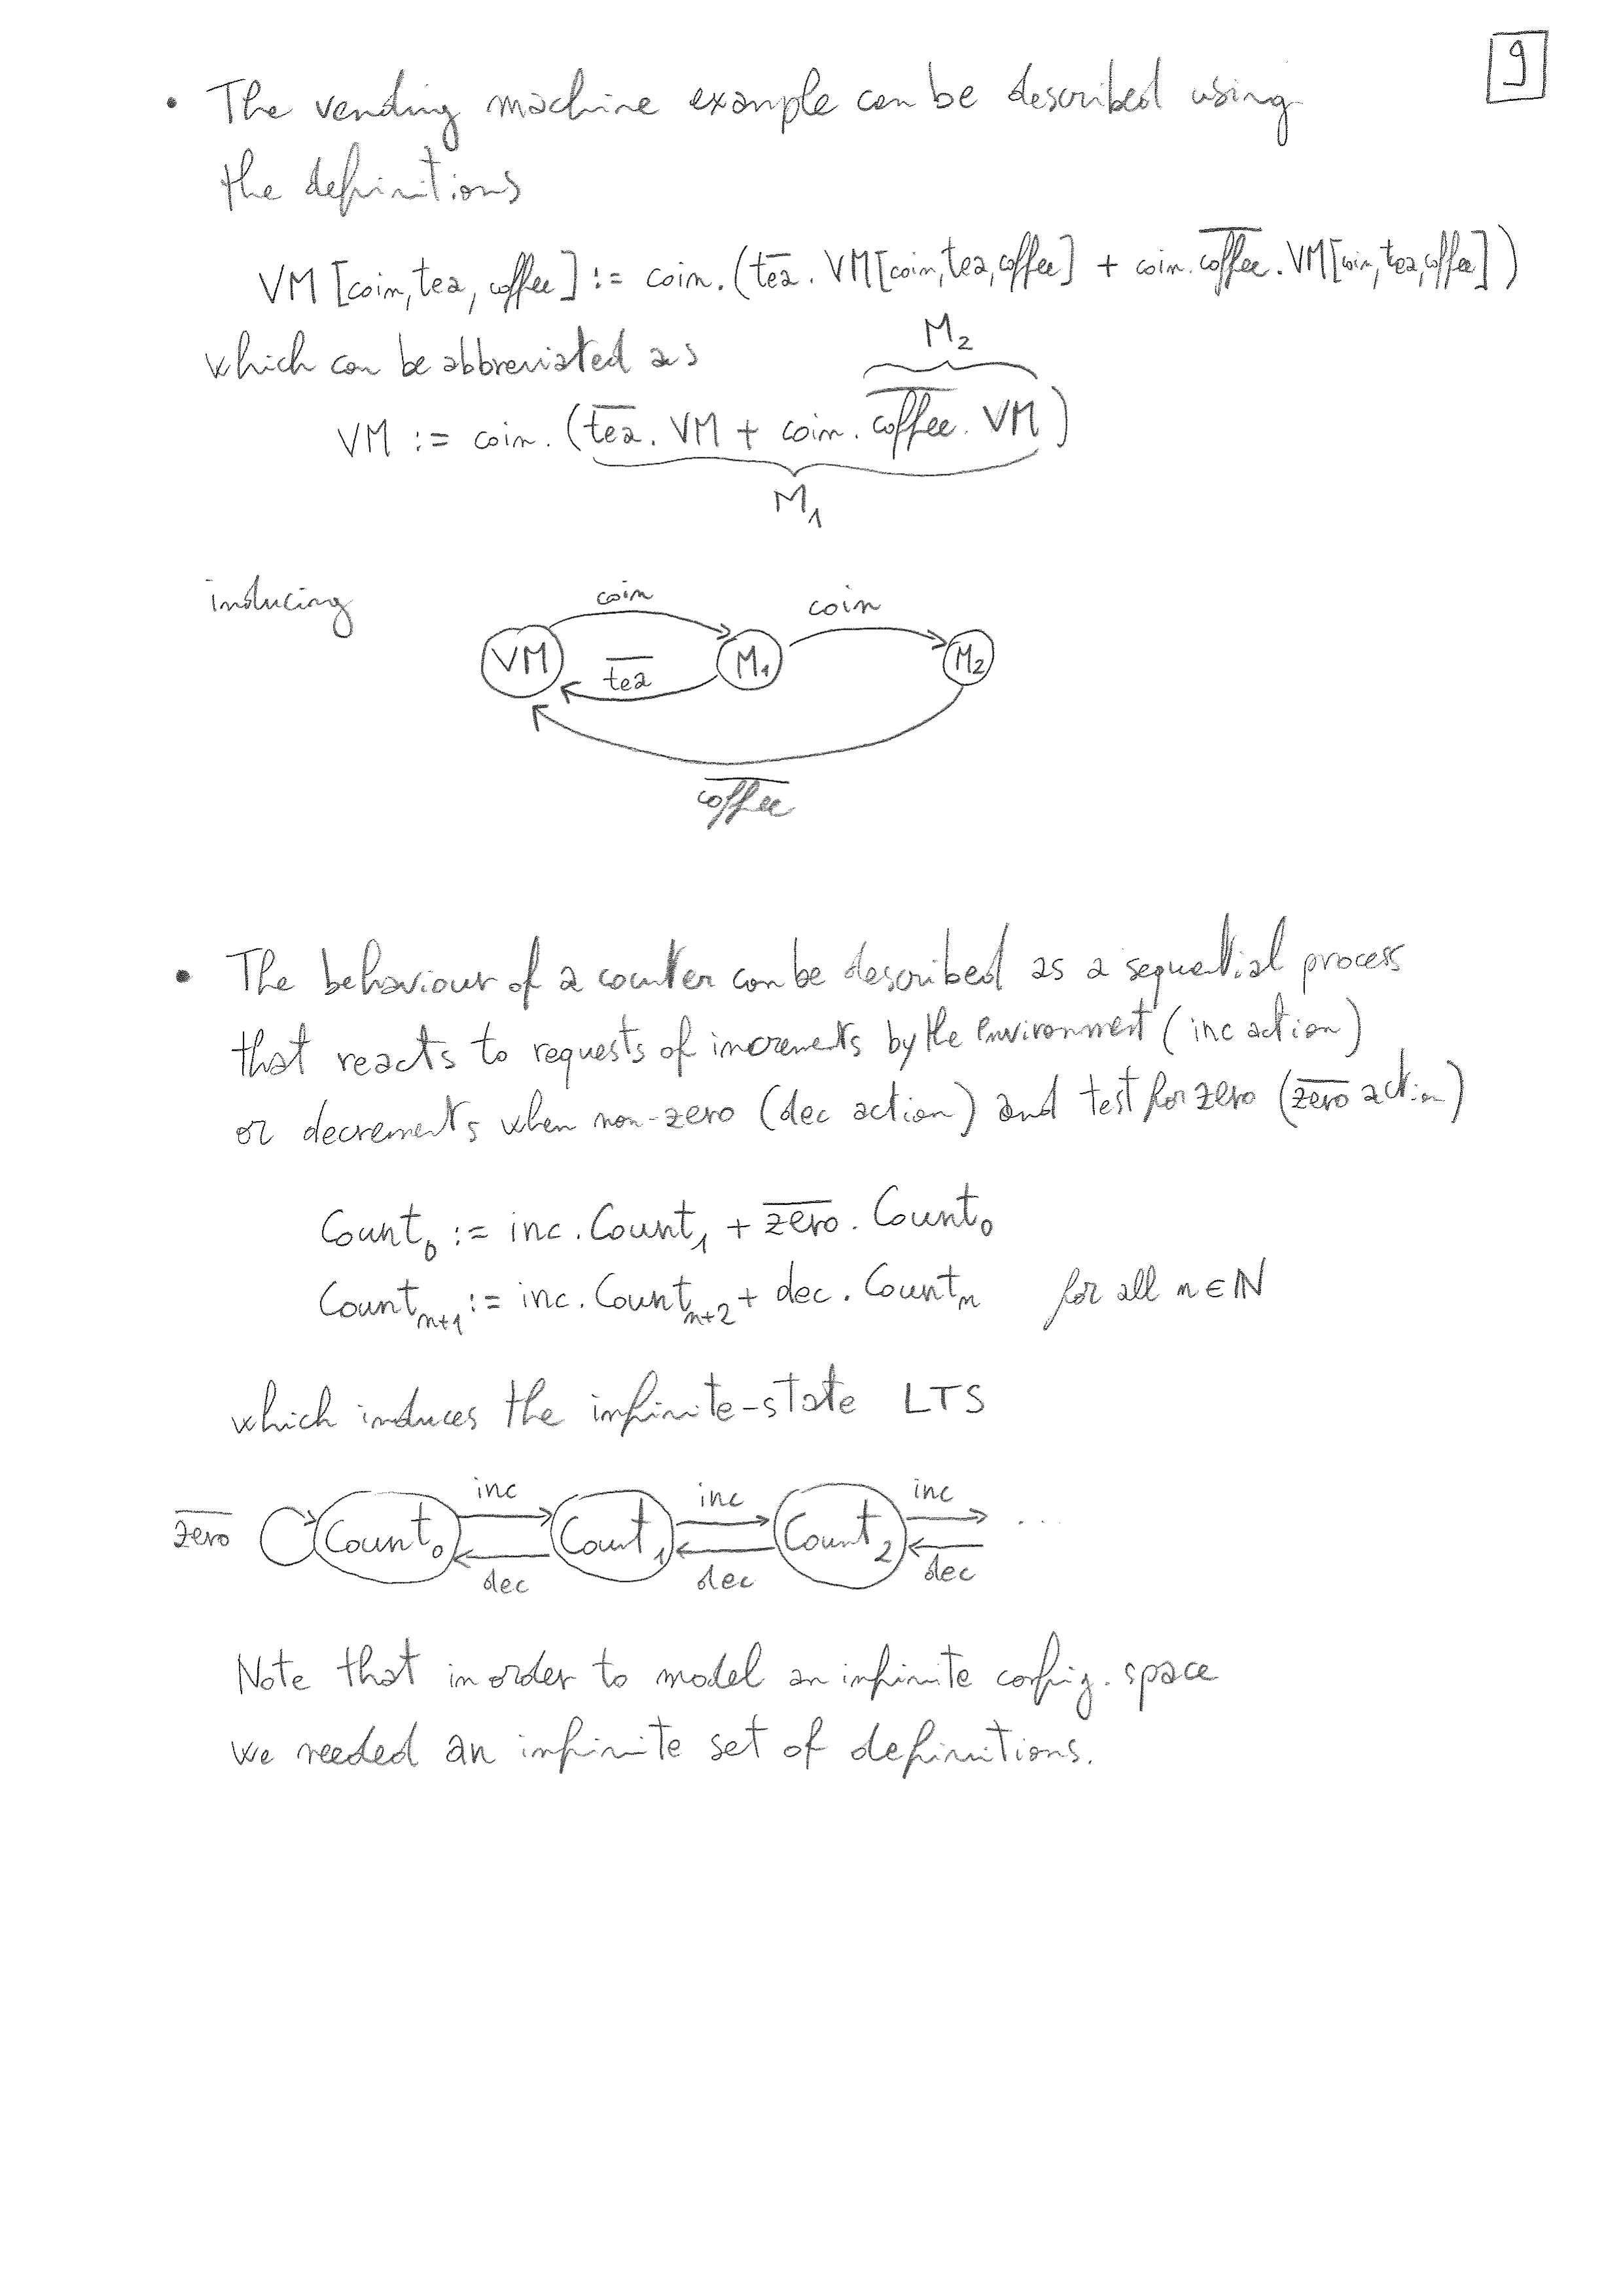 9
• The vending machine example can be described using
the definitions
VM [coin, tea, coffee] := coin. (t̅e̅a̅. VM[coin, tea, coffee] + coin. c̅o̅f̅f̅e̅e̅. VM[coin, tea, coffee])
which can be abbreviated as
M₂
VM := coin. (t̅e̅a̅. VM + coin. c̅o̅f̅f̅e̅e̅. VM)
M₁
inducing
coin coin
VM t̅e̅a̅ M₁ M₂
c̅o̅f̅f̅e̅e̅
• The behaviour of a counter can be described as a sequential process
that reacts to requests of increments by the environment (inc action)
or decrements when non-zero (dec action) and test for zero (z̅e̅r̅o̅ action)
Count₀ := inc. Count₁ + z̅e̅r̅o̅. Count₀
Countₙ₊₁ := inc. Countₙ₊₂ + dec. Countₙ for all n ∈ ℕ
which induces the infinite-state LTS
inc inc inc
z̅e̅r̅o̅ Count₀ Count₁ Count₂ ...
dec dec dec
Note that in order to model an infinite config. space
we needed an infinite set of definitions.